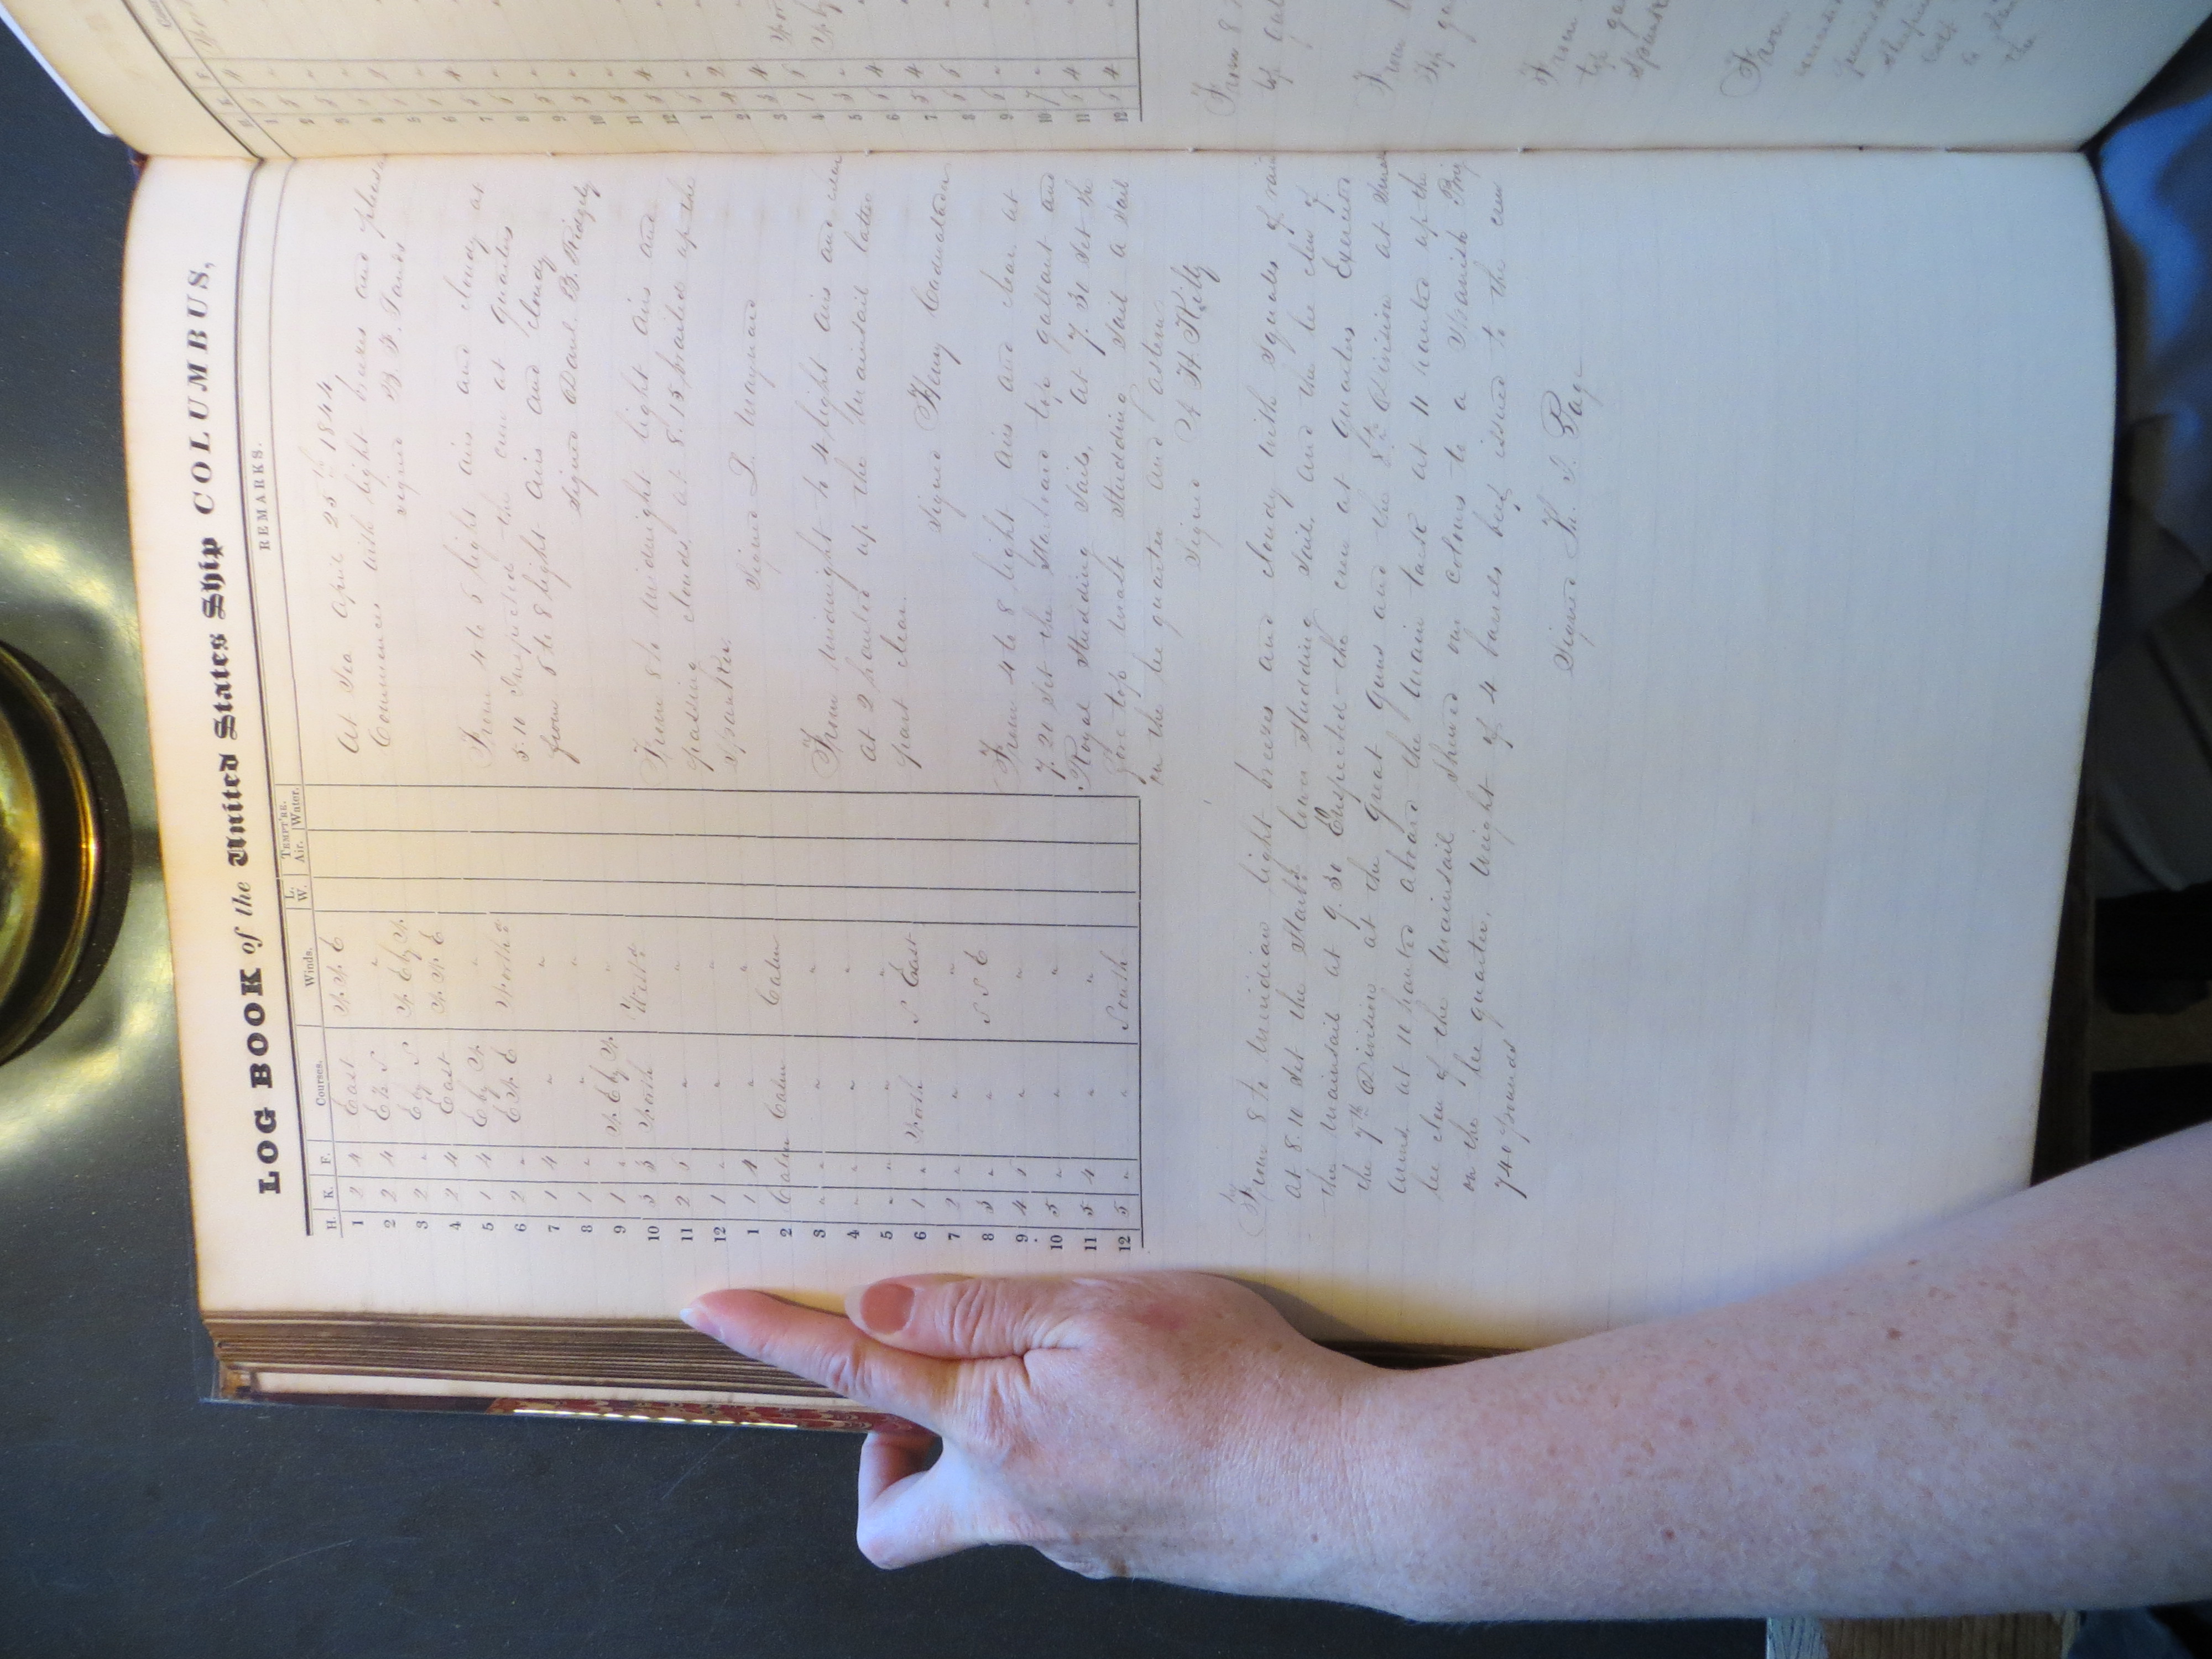 LOG BOOK of the United States Ship COLUMBUS,
H. K. F. Courses. Winds. L. W. TEMPT'RE. Air. Water. REMARKS.
1 2 4 East N. N. E
2 2 4 E ½ S "
3 2 " E by S N. E by N.
4 2 4 East N. N. E
5 1 4 E by N. "
6 2 " E N. E North
7 1 4 " "
8 1 " " "
9 1 " N. E by N. "
10 3 3 North
11 2 " "
12 1 " " "
1 1 4 " "
2 Calm Calm Calm
3 " " " "
4 " " " "
5 " " " "
6 1 " North S East
7 2 " " "
8 3 " " S S E
9 4 " "
10 5 " " "
11 5 4 " "
12 5 " " South
At Sea April 25th 1844
Commences with light breezes and
signed B. F. Sands
From 4 to 5 light airs and cloudy at
5.10 Inspected the crew at quarters
from 5 to 8 light airs and cloudy
Signed Danl. B. Ridgely
From 8 to midnight light airs and
passing clouds at 8.15 brailed up the
Spanker
Signed L. Maynard
From midnight to 4 light airs and
at 2 hauled up the mainsail latter
part clear.
Signed Henry Cadwalader
From 4 to 8 light airs and clear at
7.20 set the Starboard top gallant and
Royal Studding Sails, at 7.30 set the
fore top mast Studding Sail a sail
on the lee quarter and astern
Signed A. H. Kilty
From 8 to Meridian light breezes and cloudy with squalls of rain
at 8.10 set the Starbd. lower Studding Sail, and the lee clew of
the mainsail at 9.30 Inspected the crew at quarters Exercised
the 7th Division at the Great Guns and the 8th Division at Small
Arms at 10 hauled aboard the main tack at 11 hauled up the
lee clew of the mainsail Shewed our colours to a Spanish Brig
on the lee quarter, weight of 4 barrels beef issued to the crew
740 pounds
Signed Th. J. Page
H. K. F.
1
2
3
4
5
6
7
8
9
10
11
12
1
2
3
4
5
6
7
8
9
10
11
12
From 8
From
From
From